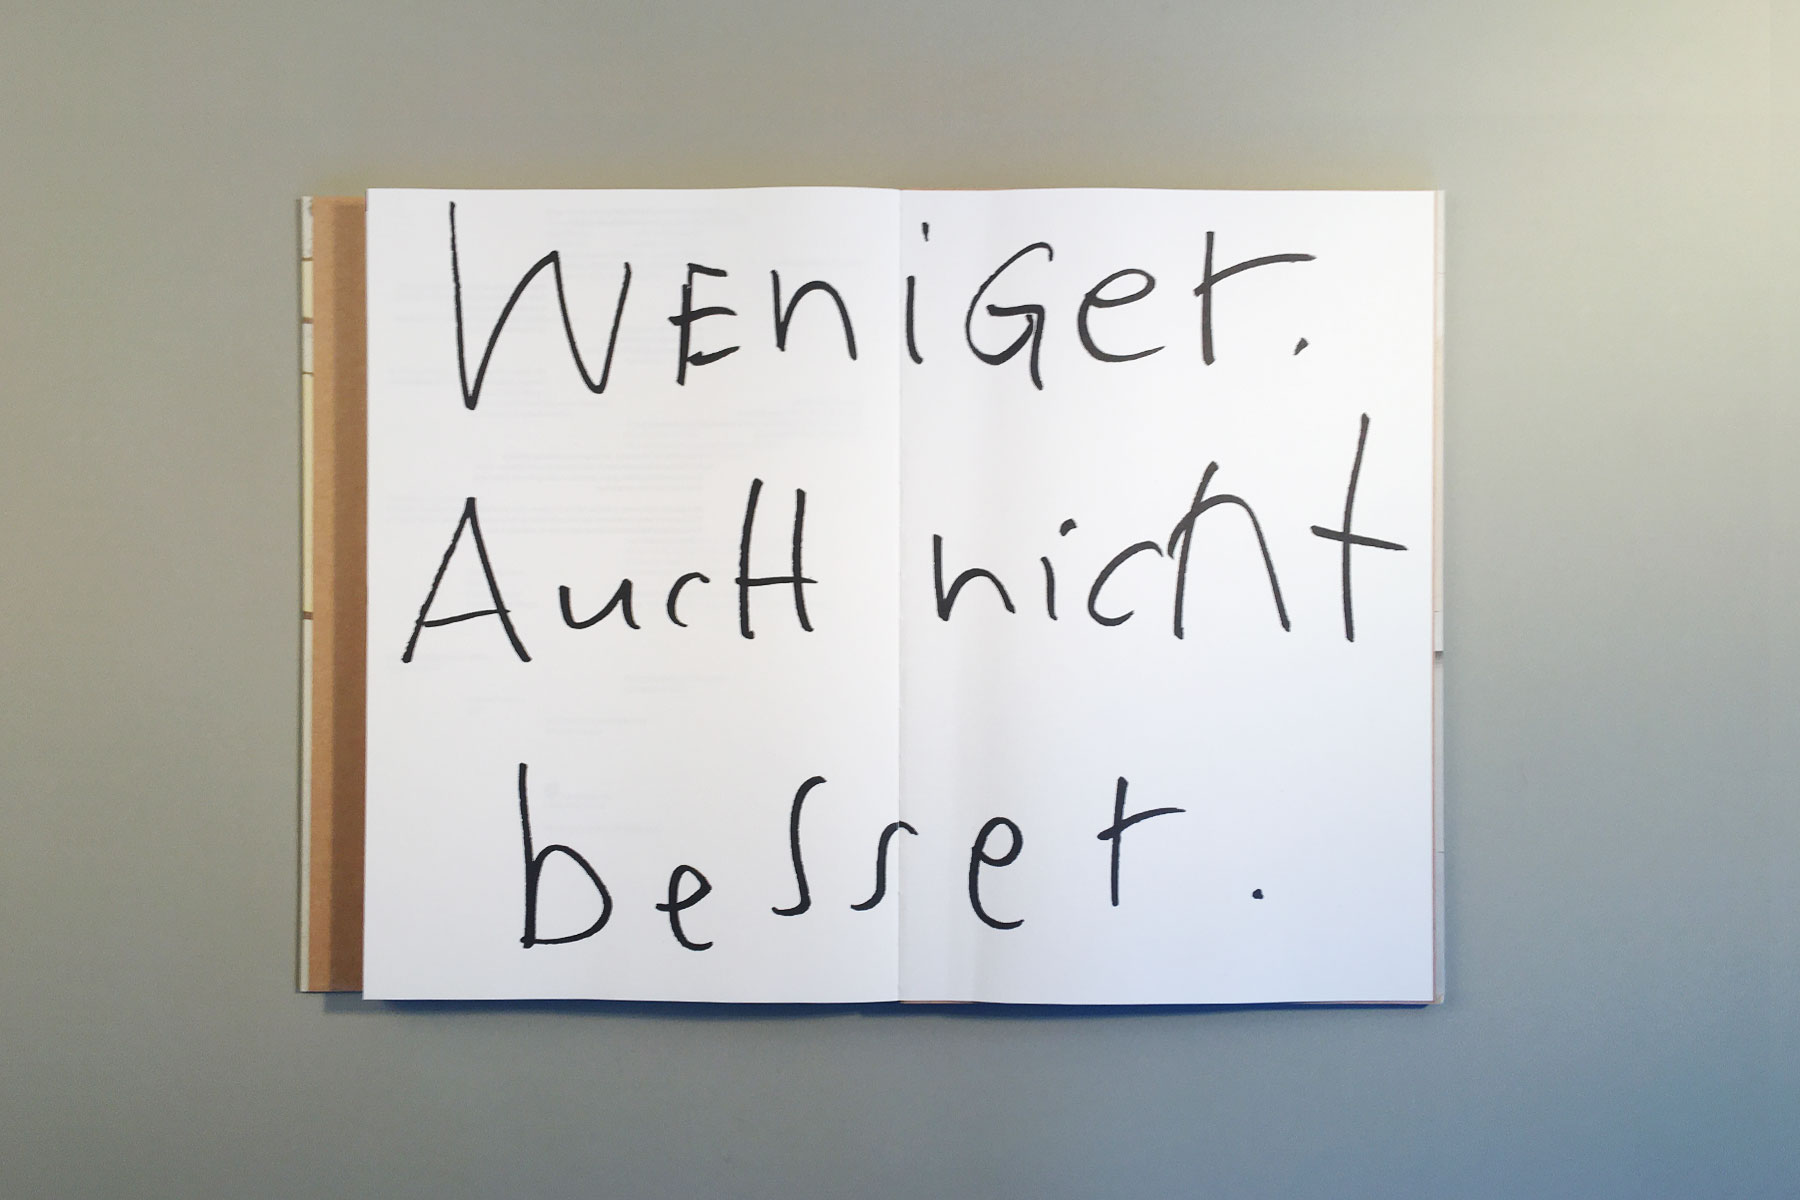 WEniGer.
AucH nicht
besser.